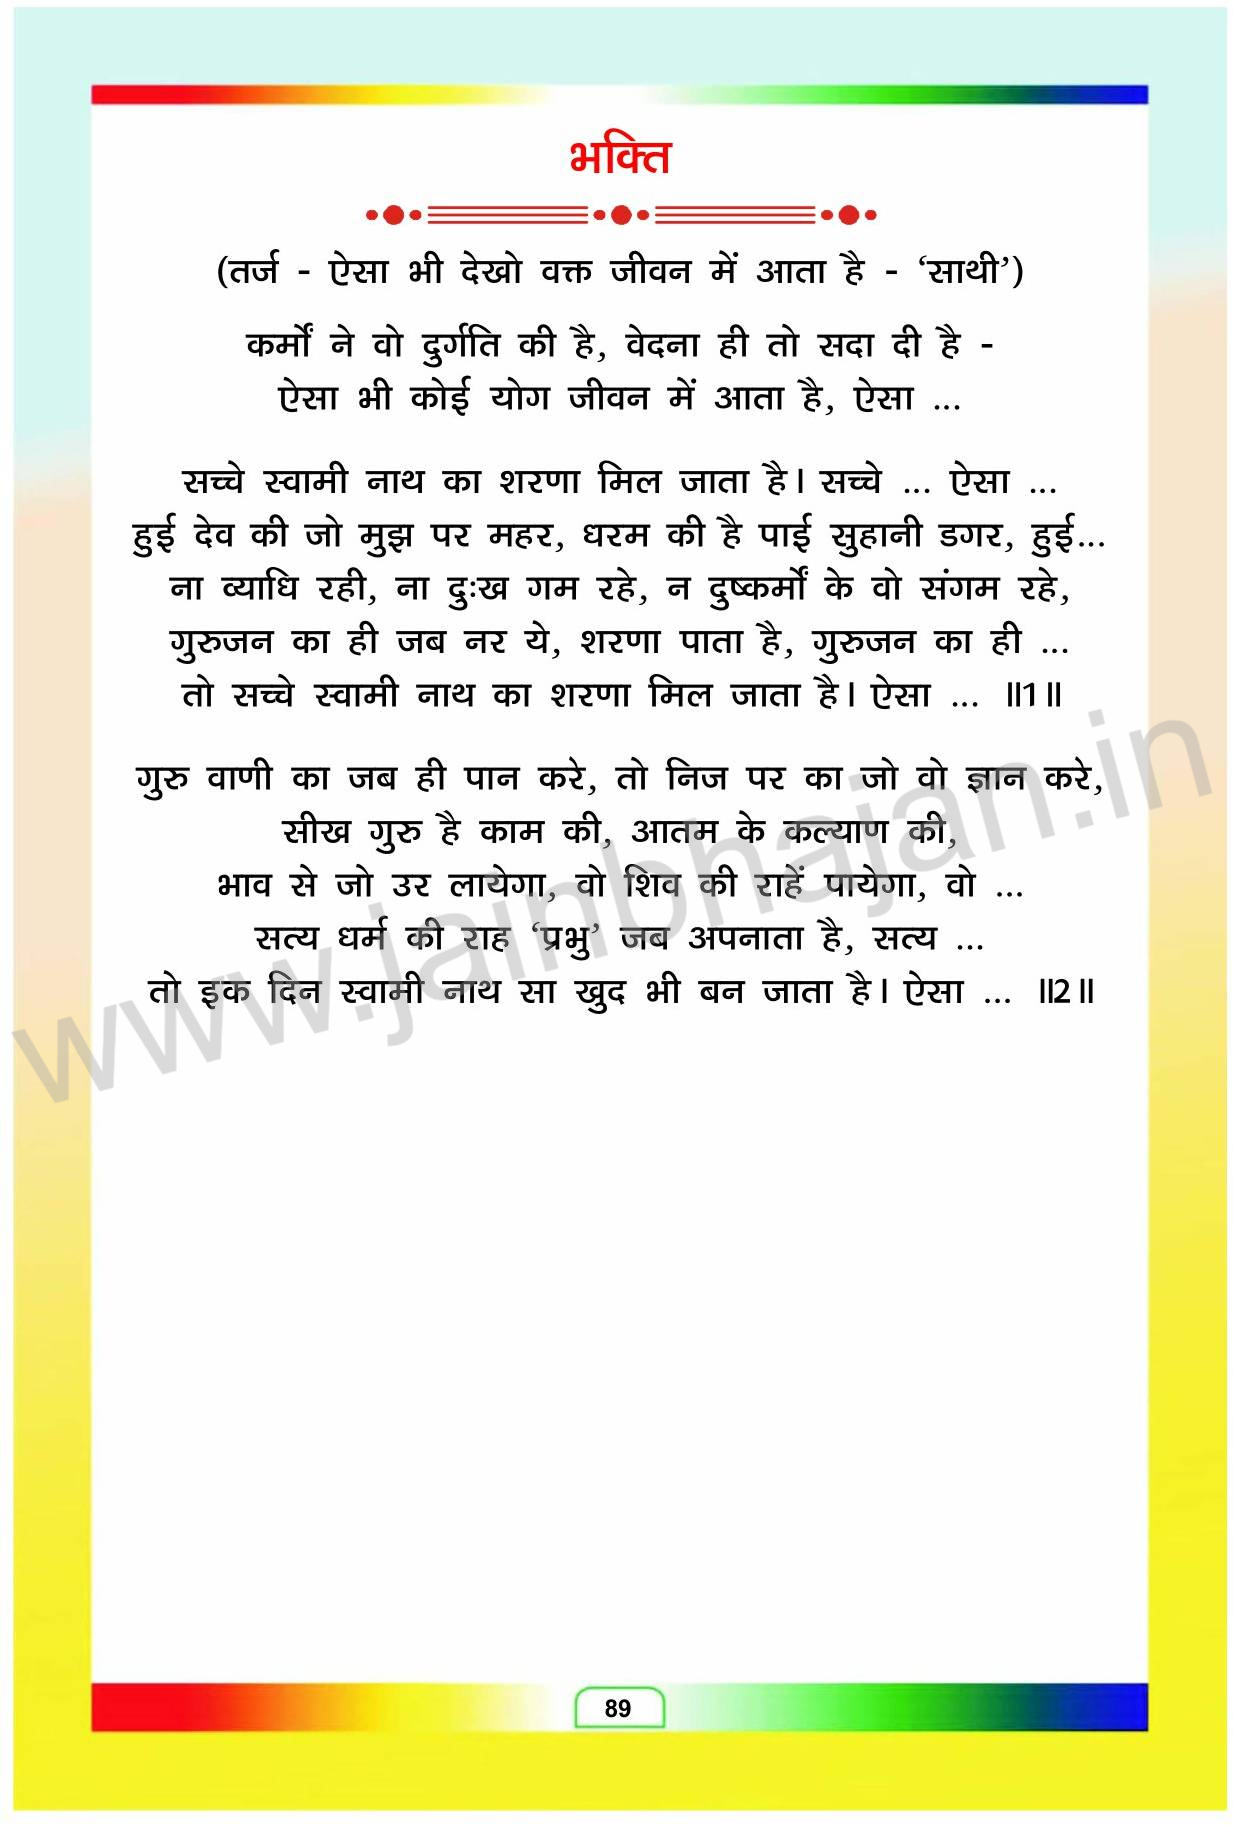 भक्ति
(तर्ज - ऐसा भी देखो वक्त जीवन में आता है - ‘साथी’)
कर्मों ने वो दुर्गति की है, वेदना ही तो सदा दी है -
ऐसा भी कोई योग जीवन में आता है, ऐसा ...
सच्चे स्वामी नाथ का शरणा मिल जाता है। सच्चे ... ऐसा ...
हुई देव की जो मुझ पर महर, धरम की है पाई सुहानी डगर, हुई...
ना व्याधि रही, ना दुःख गम रहे, न दुष्कर्मों के वो संगम रहे,
गुरुजन का ही जब नर ये, शरणा पाता है, गुरुजन का ही ...
तो सच्चे स्वामी नाथ का शरणा मिल जाता है। ऐसा ... ॥1॥
गुरु वाणी का जब ही पान करे, तो निज पर का जो वो ज्ञान करे,
सीख गुरु है काम की, आतम के कल्याण की,
भाव से जो उर लायेगा, वो शिव की राहें पायेगा, वो ...
सत्य धर्म की राह ‘प्रभु’ जब अपनाता है, सत्य ...
तो इक दिन स्वामी नाथ सा खुद भी बन जाता है। ऐसा ... ॥2॥
www.jainbhajan.in
89